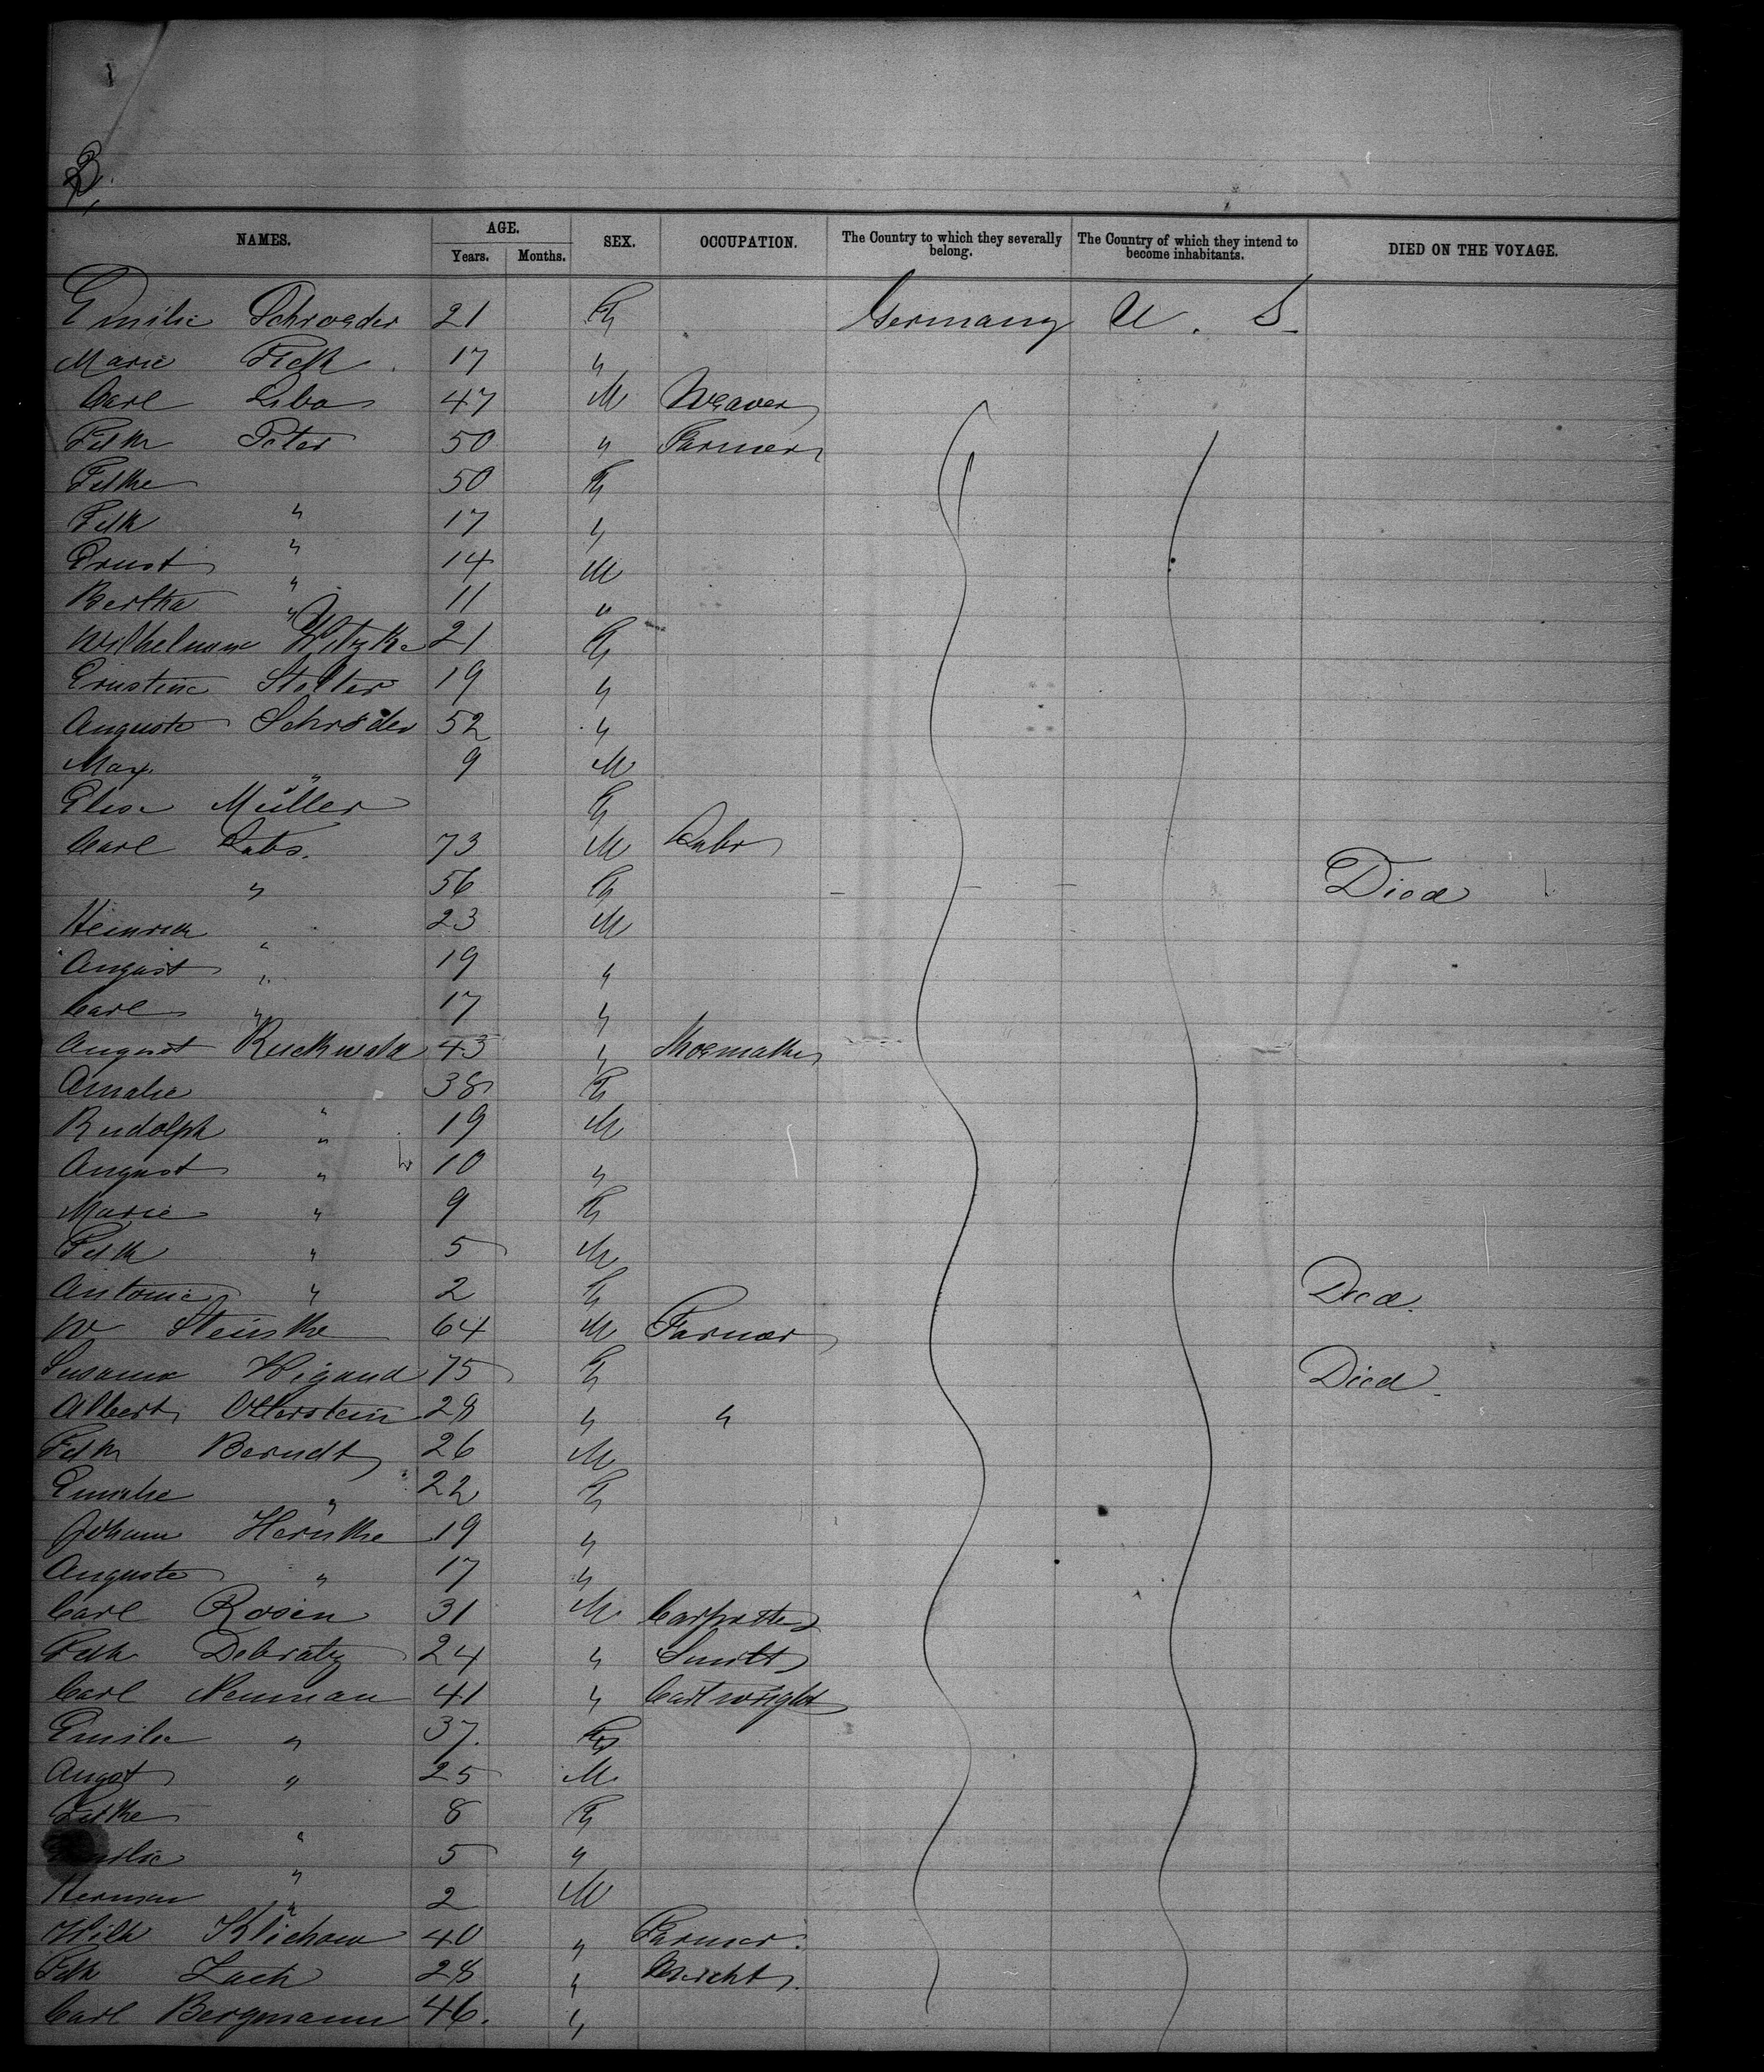 NAMES. AGE. Years. Months. SEX. OCCUPATION. The Country to which they severally belong. The Country of which they intend to become inhabitants. DIED ON THE VOYAGE.
Emilie Schroeder 21 F Germany U. S.
Marie 17 "
Carl 47 M Weaver
Fdk Peter 50 " Farmer
50 F
Fdk " 17 "
Ernst " 14 M
Bertha " 11 "
Wilhelmine 21 F
Ernstine Stolter 19 "
Auguste Schröder 52 "
Max " 9 M
Elise Müller F
Carl Labs. 73 M Labr
" 56 F Died
Heinrich " 23 M
August " 19 "
Carl " 17 "
August Ruckwald 43 " Shoemaker
Amalie " 38 F
Rudolph " 19 M
August " 10 "
Marie " 9 F
Fdk " 5 M
Antonie " 2 F Died.
W Steinke 64 M Farmer
Susanna Wigand 75 F Died.
Albert Otterstein 28 " "
Fdk Berndt 26 M
Emilie " 22 F
Johann Hernke 19 "
Auguste " 17 "
Carl Rosin 31 M Carpenter
Fdk Debratz 24 " Smith
Carl Neuman 41 " Cartwright
Emilie " 37. F
Augst " 25 M.
" 8 F
" 5 "
Herman " 2 M
Wilh Klichow 40 " Farmer.
Fdk Lach 28 "
Carl Bergmann 46. "